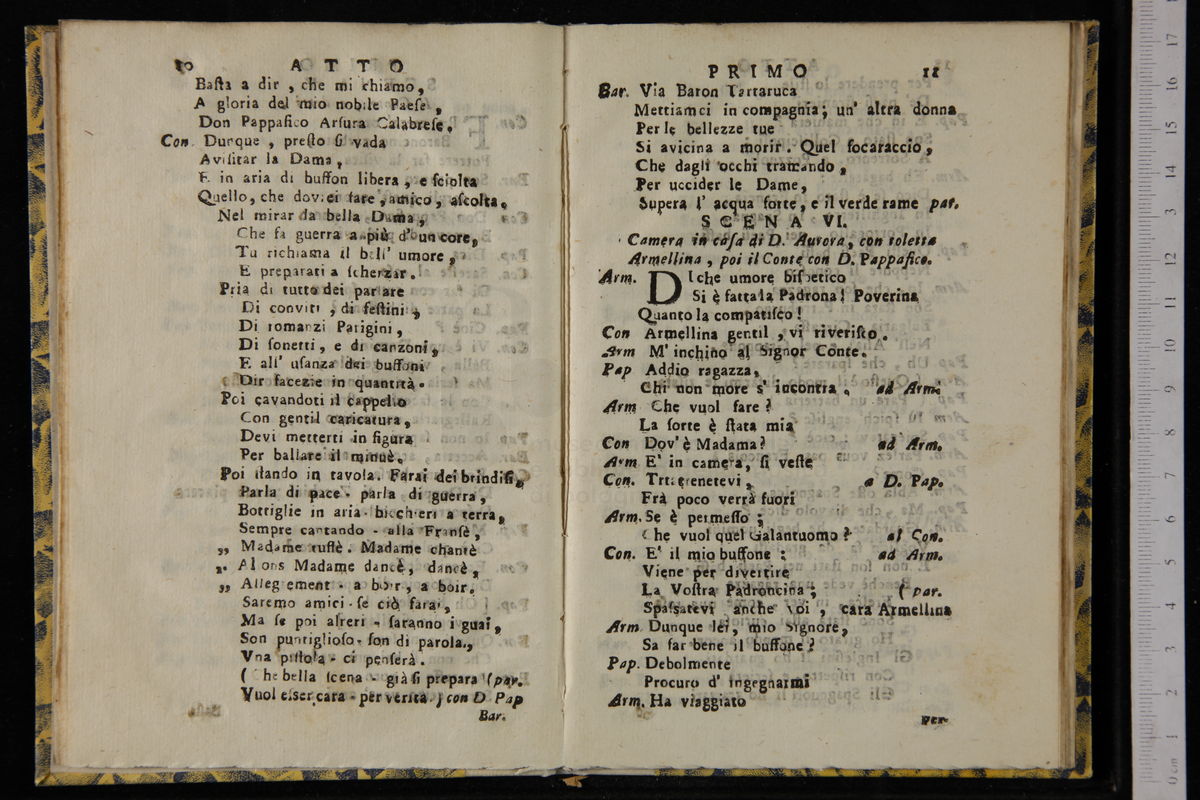 10 ATTO
Baſta a dir, che mi chiamo,
A gloria del mio nobile Paeſe,
Don Pappafico Arſura Calabreſe.
Con. Dunque, preſto ſi vada
A viſitar la Dama,
E in aria di buffon libera, e ſciolta
Quello, che dovrei fare, amico, aſcolta.
Nel mirar la bella Dama,
Che fa guerra a più d' un core,
Tu richiama il bell' umore,
E preparati a ſcherzar.
Pria di tutto dei parlare
Di conviti, di feſtini,
Di romanzi Parigini,
Di ſonetti, e di canzoni,
E all' uſanza dei buffoni
Dir facezie in quantità.
Poi cavandoti il cappello
Con gentil caricatura,
Devi metterti in figura
Per ballare il minuè.
Poi ſtando in tavola. Farai dei brindiſi,
Parla di pace - parla di guerra,
Bottiglie in aria - bicchieri a terra,
Sempre cantando - alla Franſè,
„ Madame tuſſè. Madame chantè
„ Alons Madame dancè, dancè,
„ Allegrement - a boir, a boir.
Saremo amici - ſe ciò farai,
Ma ſe poi alteri - ſaranno i guai,
Son puntiglioſo - ſon di parola,
Vna piſtola - ci penſerà.
( Che bella ſcena - già ſi prepara ( par.
Vuol eſſer cara - per verità. ) con D. Pap
Bar.
PRIMO 11
Bar. Via Baron Tartaruca
Mettiamci in compagnia; un' altra donna
Per le bellezze tue
Si avicina a morir. Quel focaraccio,
Che dagli occhi tramando,
Per uccider le Dame,
Supera l' acqua forte, e il verde rame par.
SCENA VI.
Camera in caſa di D. Aurora, con toletta
Armellina, poi il Conte con D. Pappafico.
Arm. DI che umore biſbetico
Si è fatta la Padrona! Poverina
Quanto la compatiſco!
Con Armellina gentil, vi riveriſco.
Arm M' inchino al Signor Conte.
Pap Addio ragazza,
Chi non more s' incontra. ad Arm.
Arm Che vuol fare?
La ſorte è ſtata mia
Con Dov' è Madama? ad Arm.
Arm E' in camera, ſi veſte
Con. Trattenetevi, a D. Pap.
Frà poco verrà fuori
Arm. Se è permeſſo;
Che vuol quel Galantuomo? al Con.
Con. E' il mio buffone: ad Arm.
Viene per divertire
La Voſtra Padroncina; ( par.
Spaſsatevi anche voi, cara Armellina
Arm Dunque lei, mio Signore,
Sa far bene il buffone?
Pap. Debolmente
Procuro d' ingegnarmi
Arm. Ha viaggiato
Per